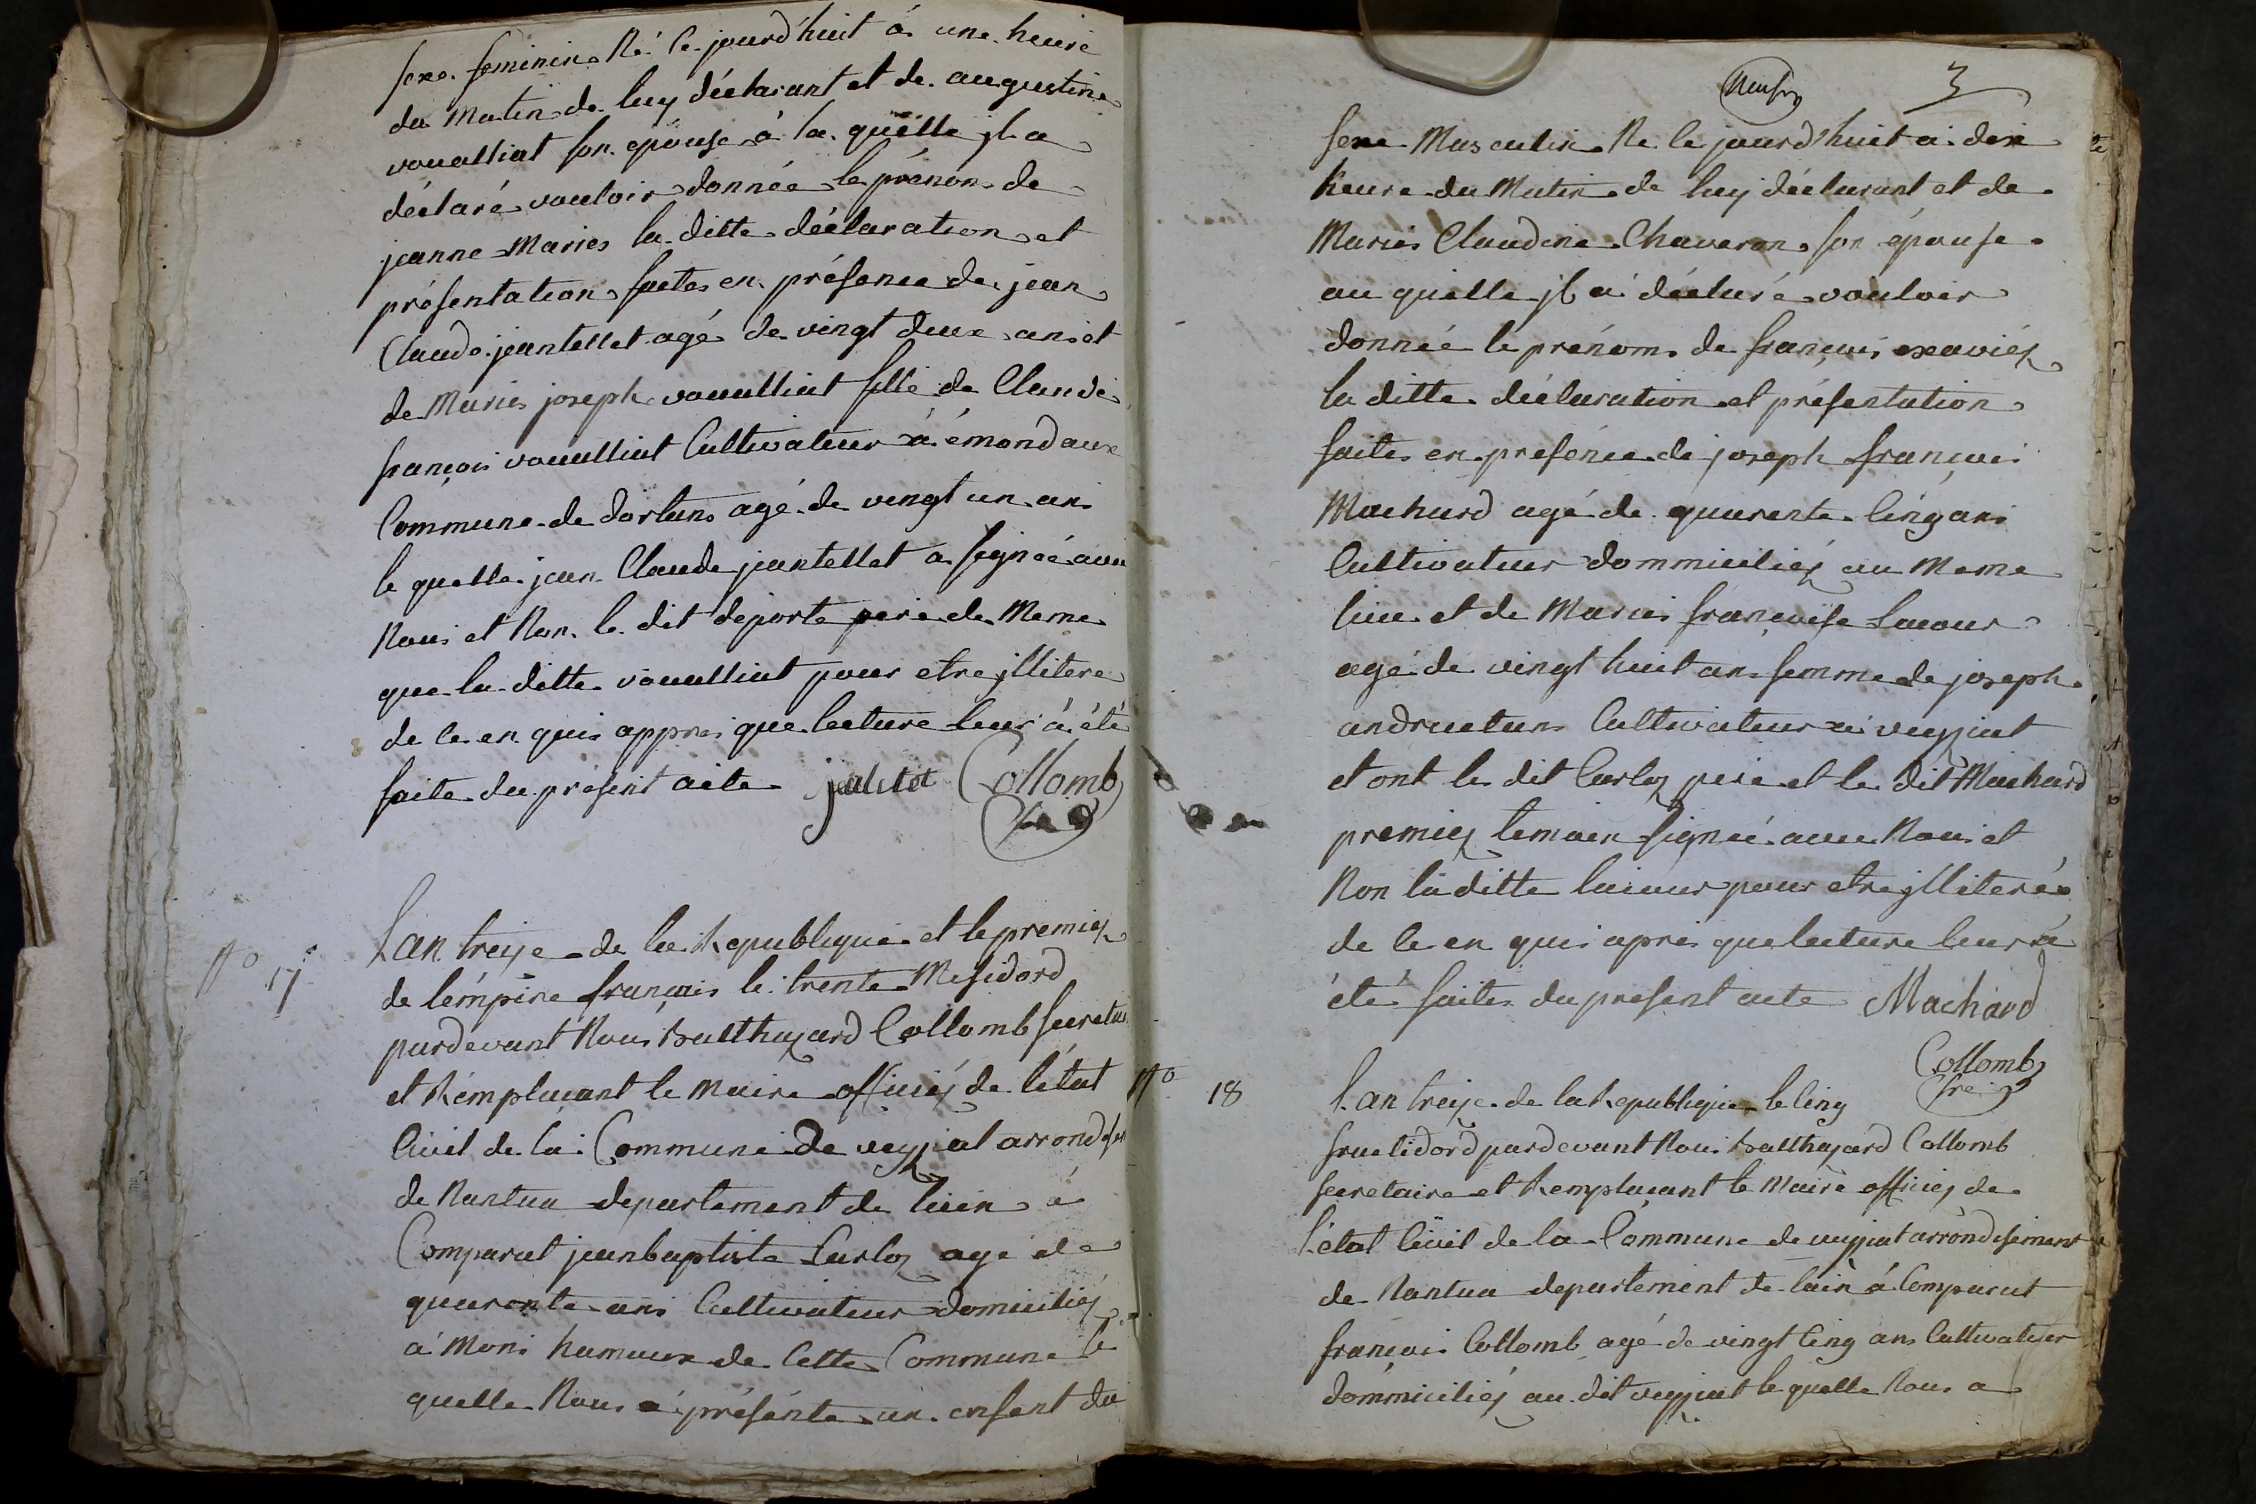 sexe feminine Né le jourd'huit á une heure
du Matin de luy déclarant et de augustine
vouattiat son épouse à la quelle jl a
déclaré vouloir donnée le prénom de
jeanne Maries la ditte déclaration et
présentation faites en présence de jean
Claude jeantellet agé de vingt deux ans et
de Maries joseph vouattiat fille de Claude
françois vouattiat Cultivateur à émondaux
Commune de dortans agé de vingt un ans
le quelle jean Claude jeantellet a signeé avec
Nous et Non le dit deporte pere de Meme
que la ditte vouattiat pour etre jllitere
de ce en quis appres que lecture leur à été
faite du présent acte Collomb
sre
No 17
Lan treize de la Republique et le premiez
de lémpire français le trente Mesidord
pardevant Nous Balthazard Collomb secretaire
et Rémplacant le Maire officiéz de létat
Civil de la Commune de veyziat arrondisse
de Nantua departement de lain à
Comparut jeanbaptiste Carloz agé de
quarente ans Cultivateur domiciliéz
à Mons hamaux de Cette Commune le
quelle Nous à présénte un enfent du
3
sexe Masculin Ne le jourd'huit à dix
heure du Matin de luy déclarant et de
Maries Claudine Chaveron son épouse
au quelle jl à déclaré vouloir
donnée le prénom de françois exaviéz
la ditte déclaration et présentation
faites en présence de joseph françois
Machard agé de quarente Cinq ans
Cultivateur dommiciliéz au Meme
lieu et de Maries françoise Lacour
agé de vingt huit ans femme de joseph
andruetans Cultivateur à veyziat
et ont le dit Carloz pere et le dit Machard
premiez temoin signeé avec Nous et
Non la ditte lacour pour etre jlliteréé
de ce en quis apres que lecture leur à
été faites du present acte Machard
Collomb
sre
No 18
Lan treize de la Republique le cinq
fructidord pardevant Nous Balthazard Collomb
secretaire et Remplacant le Maire officiez de
l'état Civil de la Commune de veyziat arrondisement
de Nantua departement de lain à Comparut
françois Collomb agé de vingt Cinq ans Cultivateur
dommiciliéz au dit veyziat le quelle Nous a